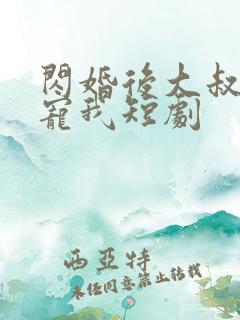 閃婚後大叔
寵我短劇
西亞特
未經同意禁止轉載